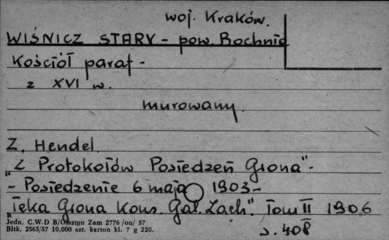 woj. Kraków.
WIŚNICZ STARY - pow. Bochnia
Kościół paraf -
z XVI w.
murowany.
Z. Hendel.
"Z Protokołów Posiedzeń Grona" -
- Posiedzenie 6 maja 1903 -
"Teka Grona Kons. Gal. Zach". Tom II 1906
s. 408
Jedn. C.W.D B/Olsztyn Zam 2776 /on/ 57
Bltk. 2563/57 10,000 szt. karton kl. 7 g 220.